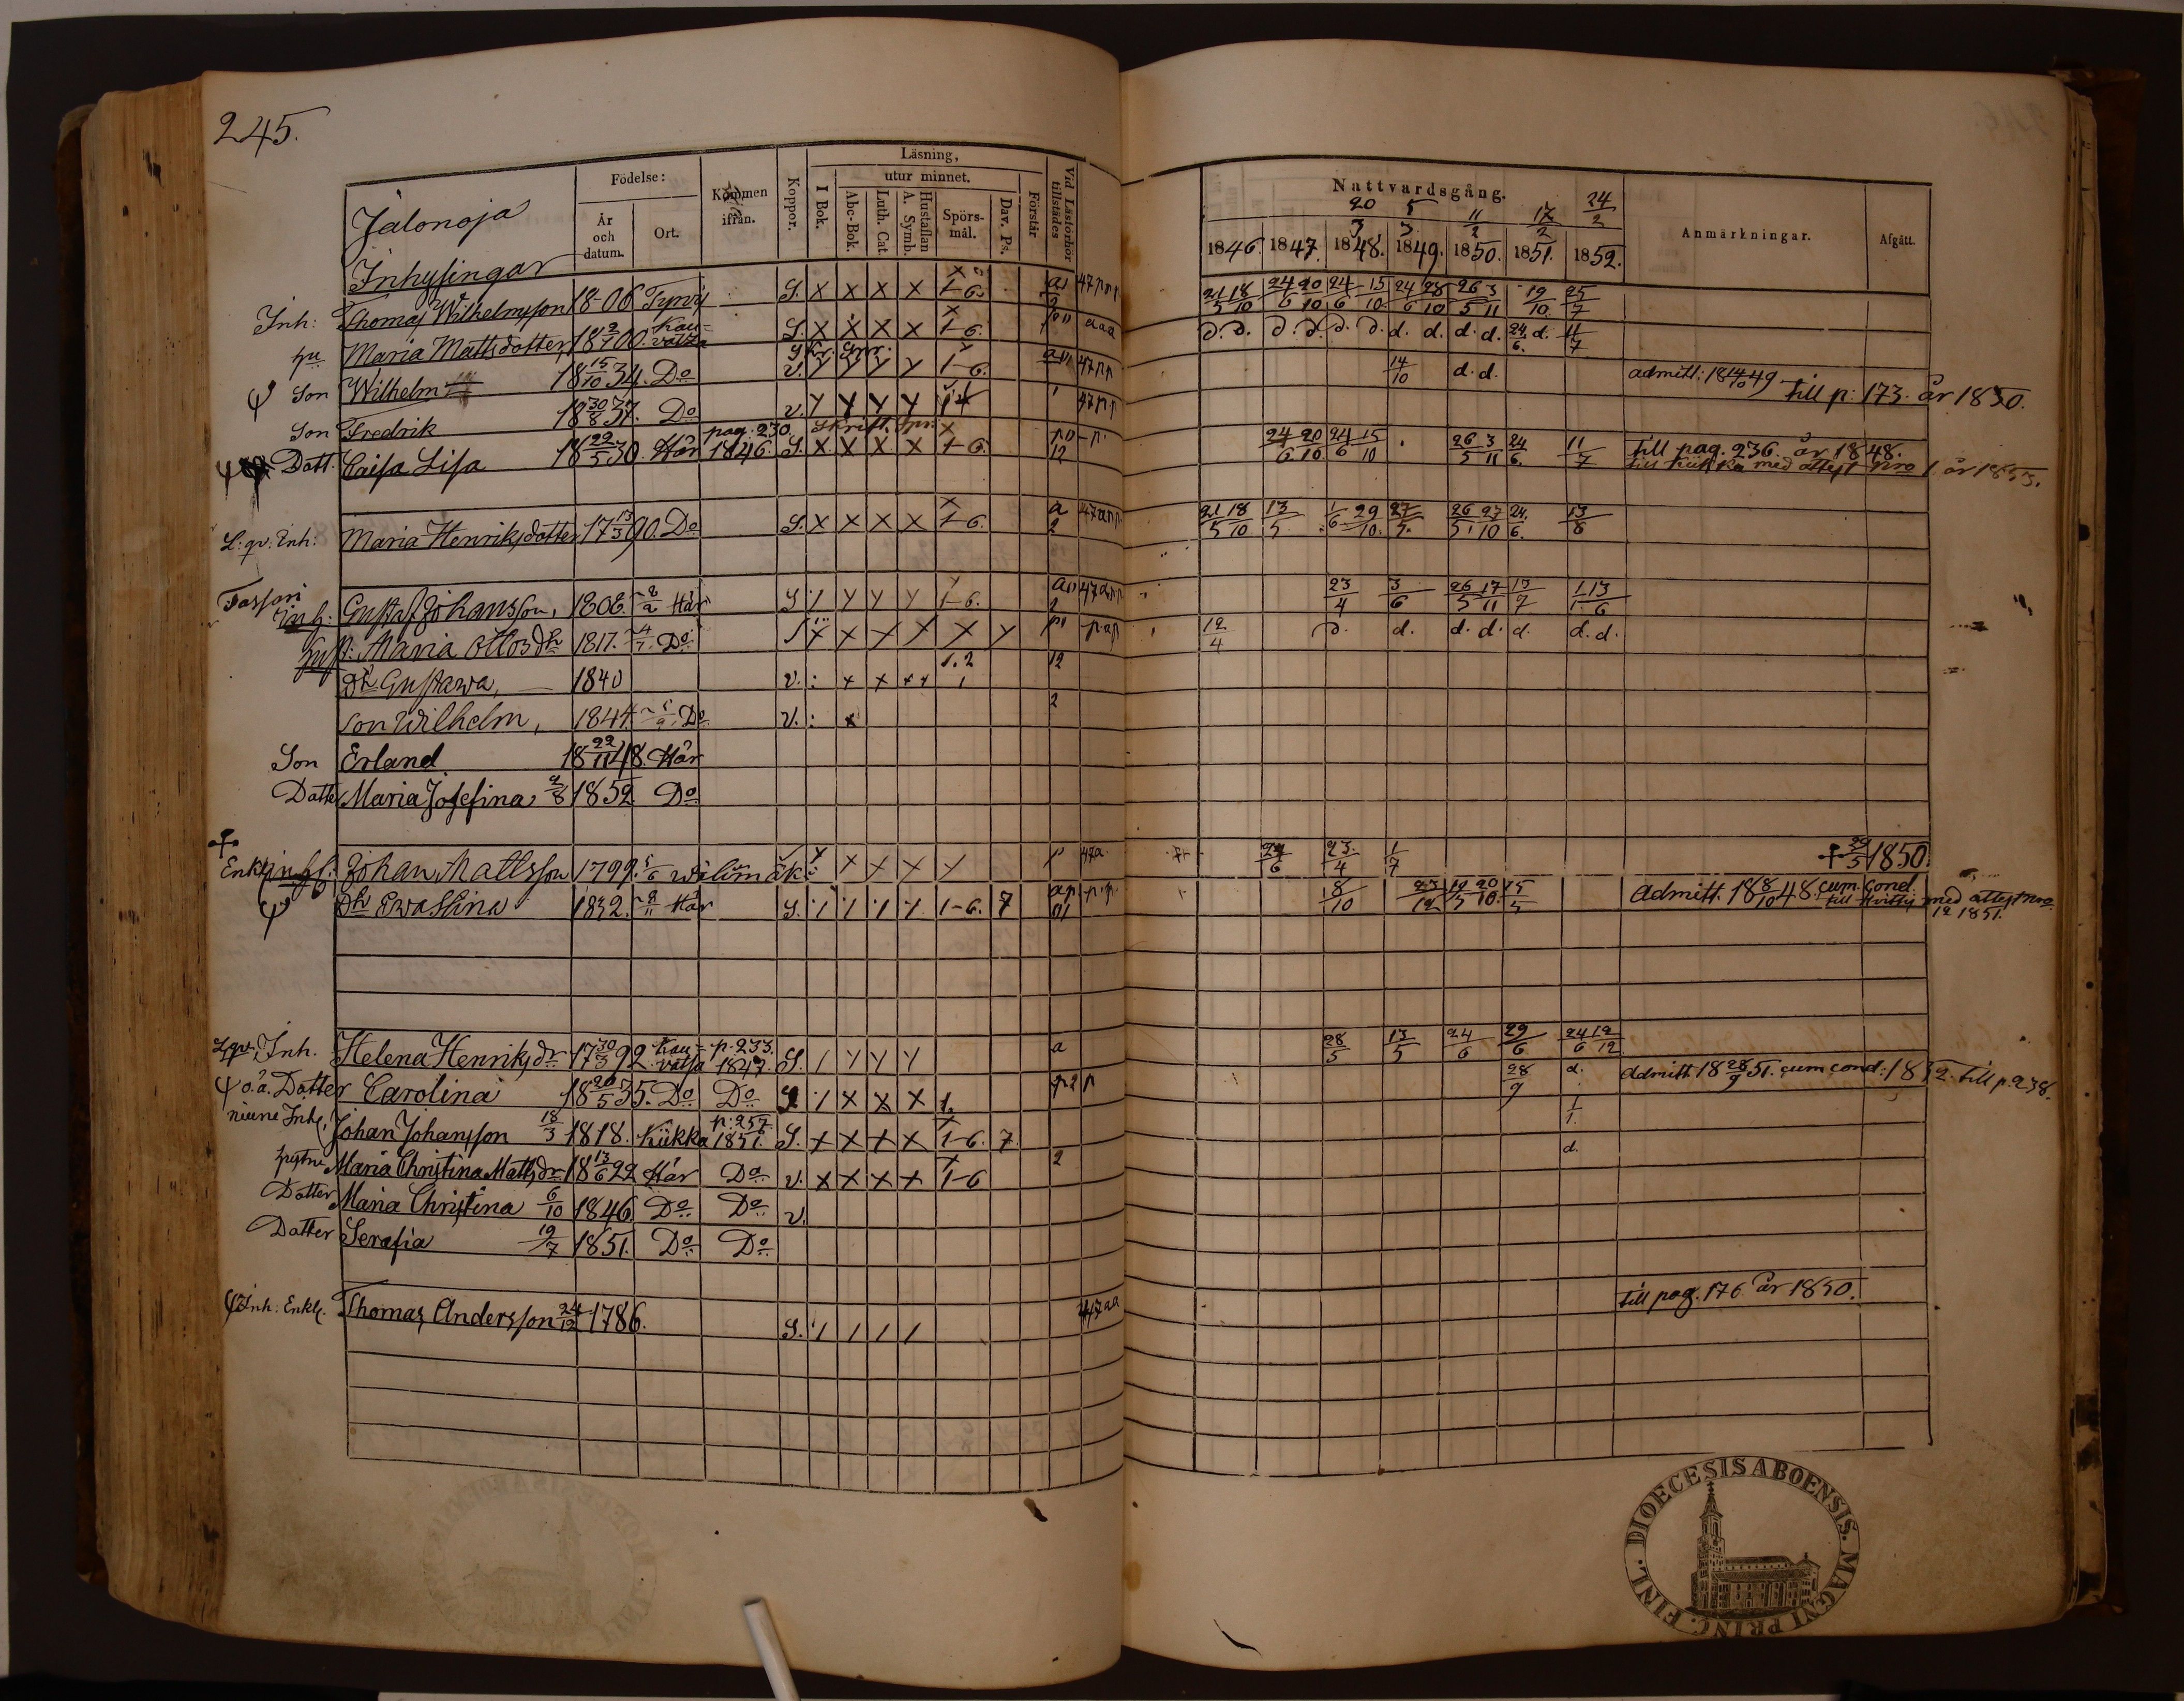 245.
Jalonoja
Inhysingar
Födelse:
År och datum.
Ort.
Kommen ifrån.
Koppor.
Läsning,
I Bok.
utur minnet.
Abc-Bok.
Luth. Cat.
Hustaflan A. Symb.
Spörs-mål.
Dav. Ps.
Förstår
Vid Läsförhör tillstädes
Nattvardsgång.
20/3 5/3 11/2 17/2 24/2
1846. 1847. 1848. 1849. 1850. 1851. 1852.
Anmärkningar.
Afgått.
Inh: Thomas Wilhelmsson 18-06 S. x x x x 1-6. 21/5 18/10 24/6 20/10 24/6 15/10 24/6 28/10 26/5 3/11 19/10 25/7
hu Maria Mattsdotter 18 00. Kau=vatsa S. x x x x 1-6. aaa d. d. d. d. d. d. d. d. d. d. 24/6. d. 11/7
Son Wilhelm 18 15/10 34. Do v. y y y y 1-6. 47 14/10 d. d. admitt: 18 14/10 49 till p: 173. år 1850.
Son Fredrik 18 30/8 37. Do v. y y y y
Dott. Caisa Lisa 18 22/5 30. Här pag. 230. 1846. S. x x x x 1-6. 24/6 20/10 24/6 15/10 26/5 3/11 24/6. 11/7 till pag. 236. år 1848.
till Kiikka med attest nro 1. år 1853.
L: qv: Inh: Maria Henriksdotter 17 13/3 90. Do S. x x x x 1-6. a 2 21/5 18/10 13/5 1/6 29/10. 27/5. 26/5 27/10 24/6. 13/8
inh. Gustaf Johansson, 1806. 8/2 Här S y y y 1-6. 23/4 3/6 26/5 17/11 13/7 1/1 13/6
hust: Maria Ottosdr 1817. Do x x x x x 12/4 d. d. d. d. d. d. d.
Dr Gustawa, 1840 v. x x x x 1. 2 12
son Wilhelm, 1844. Do v. x 2
Son Erland 18 22/11 48. Här
Dotter Maria Josefina 1852 Do
Enkl Johan Mattsson 1799. x x x x 24/6 23/4 1/7 1850
Dr Ewa Stina 1832. Här S. 1-6. 7 8/10 15/5 Admitt. 18 8/10 48. cum cond.
till Hvittis med attest nro 12 1851.
Lqv. Inh. Helena Henriksdr 17 30/3 92 Kau=vatsa p. 233. 1847. S. y y y a 28/5 13/5 24/6 29/6 24/6 12/12
o. ä. Dotter Carolina 18 20/5 35. Do Do S x x x 1. 28/9 d. Admitt 18 28/9 51. cum cond: 1852. till p. 238.
Inh. Johan Johansson 18/3 1818. Kiikka p: 257 1851. S. x x x x 1-6. 7. 1/1.
Maria Christina Mattsdr 18 13/6 22 Här Do v. x x x x 1-6 2 d.
Dotter Maria Christina 6/10 1846 Do Do v.
Dotter Serafia 19/7 1851. Do Do
Inh: Enkl. Thomas Andersson 24/12 1786. S. 47 aa till pag. 176 år 1850.
FINL. DIOECESIS ABOENSIS. MAGNI PRINC.